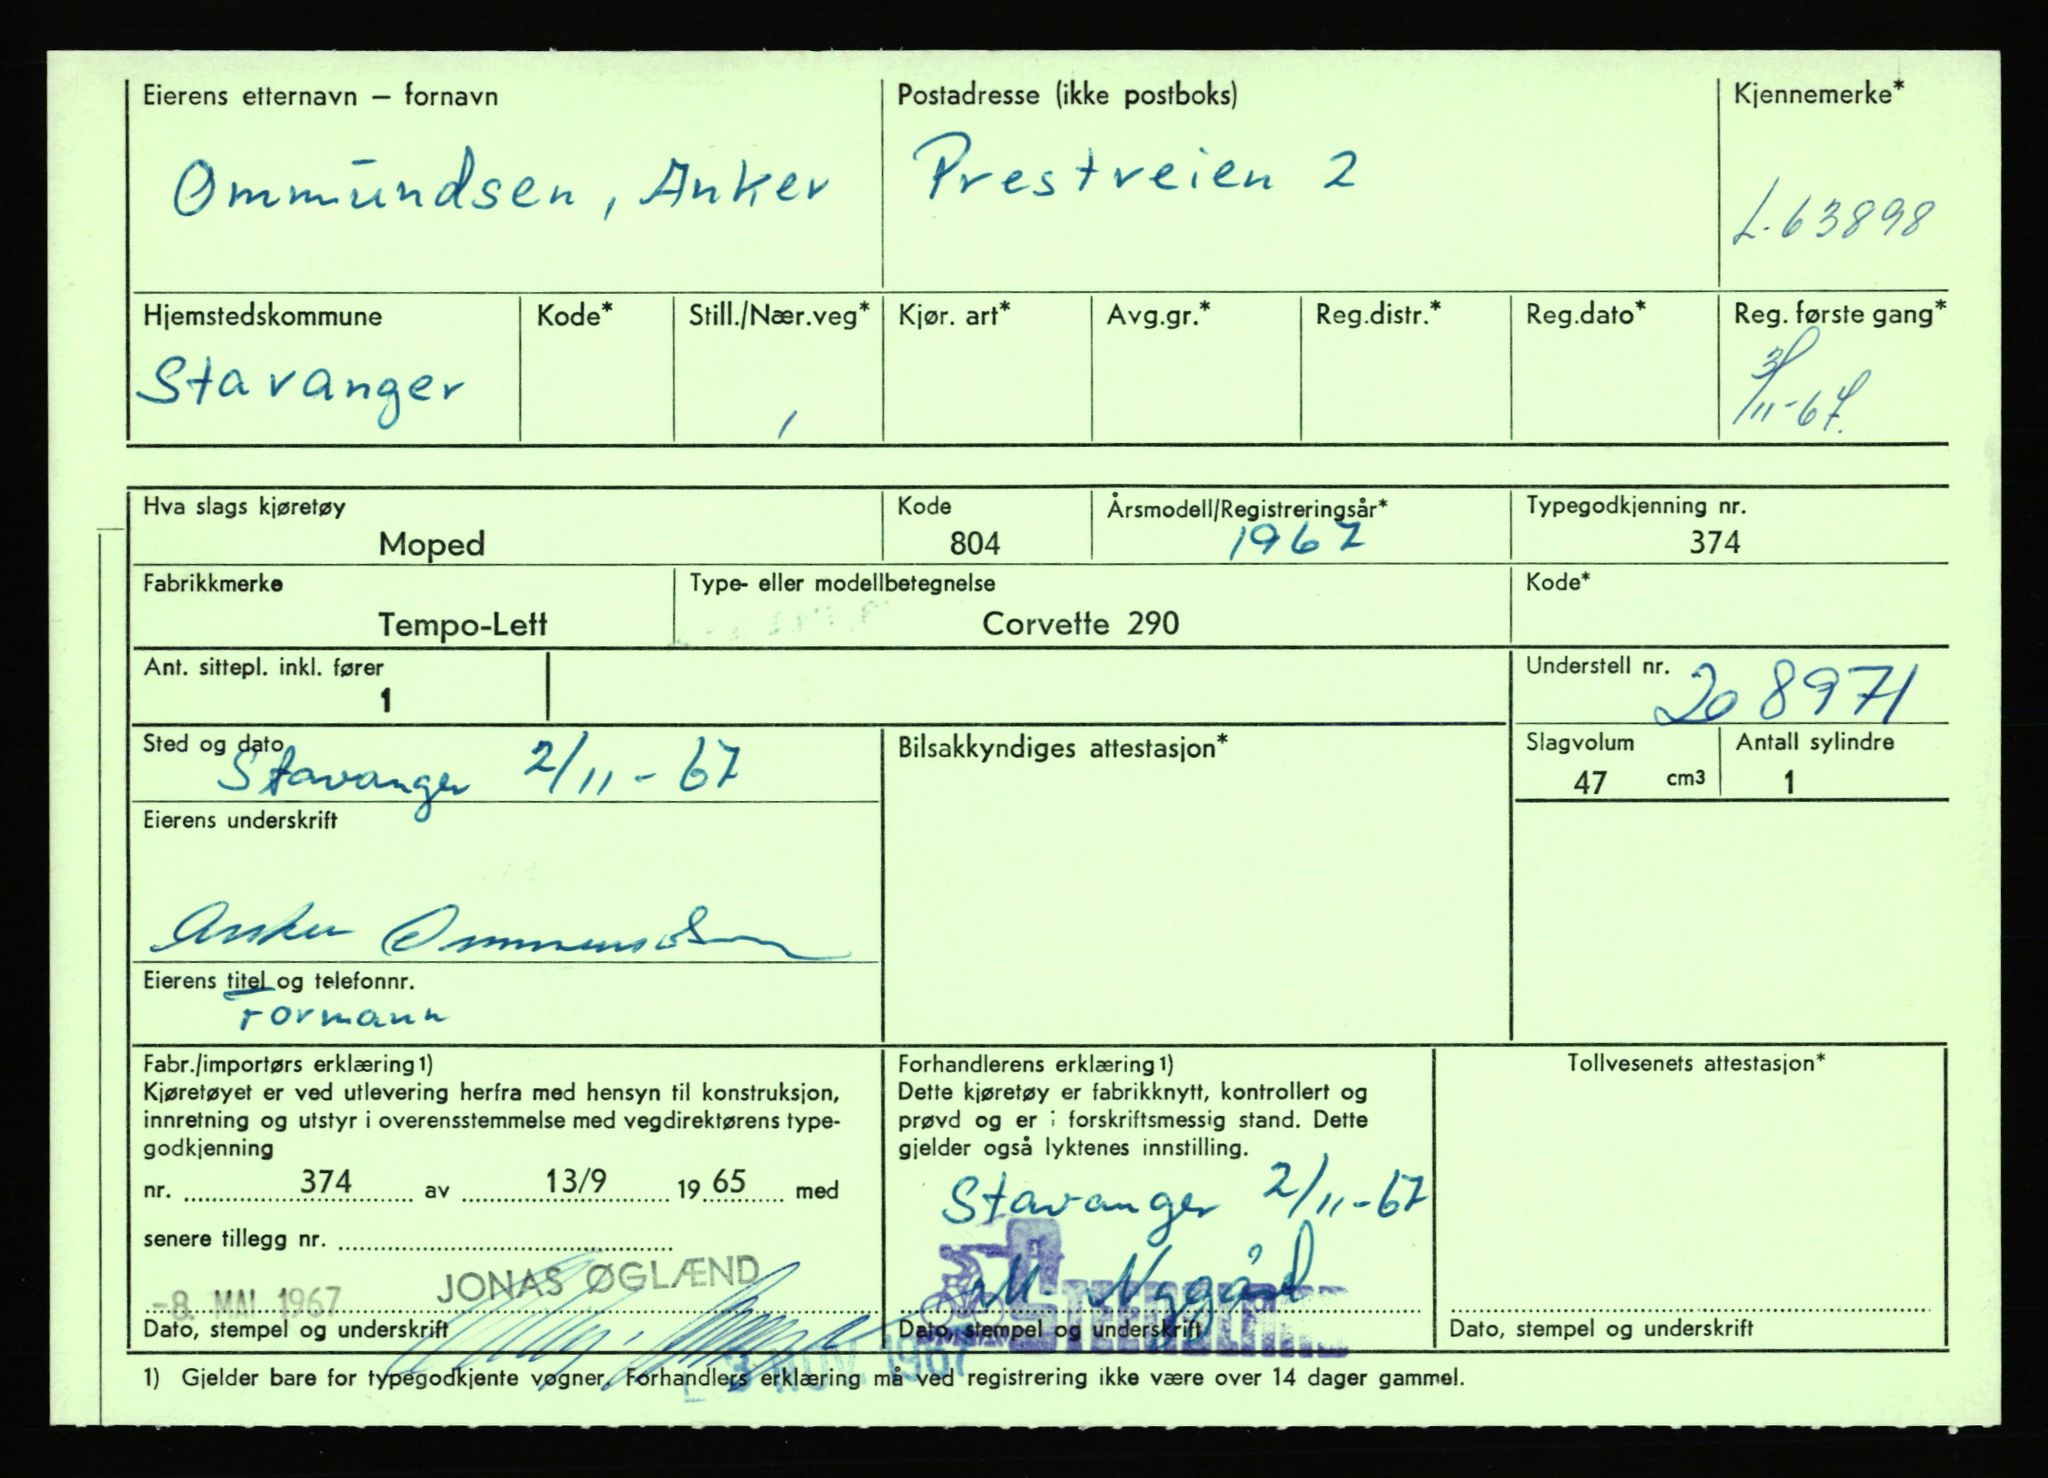 Eierens etternavn – fornavn
Ommundsen, Anker
Postadresse (ikke postboks)
Prestveien 2
Kjennemerke*
L-63898
Hjemstedskommune
Stavanger
Kode*
Still./Nær.veg*
Kjør. art*
Avg.gr.*
Reg.distr.*
Reg.dato*
Reg. første gang*
3/11-67.
Hva slags kjøretøy
Moped
Kode
804
Årsmodell/Registreringsår*
1967
Typegodkjenning nr.
374
Fabrikkmerke
Tempo-Lett
Type- eller modellbetegnelse
Corvette 290
Kode*
Ant. sittepl. inkl. fører
1
Understell nr.
208971
Sted og dato
Stavanger 2/11-67
Bilsakkyndiges attestasjon*
Slagvolum
47 cm3
Antall sylindre
1
Eierens underskrift
Anker Ommundsen
Eierens titel og telefonnr.
Formann
Fabr./importørs erklæring1)
Kjøretøyet er ved utlevering herfra med hensyn til konstruksjon,
innretning og utstyr i overensstemmelse med vegdirektørens type-
godkjenning
nr. 374 av 13/9 1965 med
senere tillegg nr.
-8. MAI 1967
JONAS ØGLÆND
Dato, stempel og underskrift
Forhandlerens erklæring1)
Dette kjøretøy er fabrikknytt, kontrollert og
prøvd og er i forskriftsmessig stand. Dette
gjelder også lyktenes innstilling.
Stavanger 2/11-67
M. Nygård
Dato, stempel og underskrift
Tollvesenets attestasjon*
Dato, stempel og underskrift
3 NOV 1967
1) Gjelder bare for typegodkjente vogner. Forhandlers erklæring må ved registrering ikke være over 14 dager gammel.